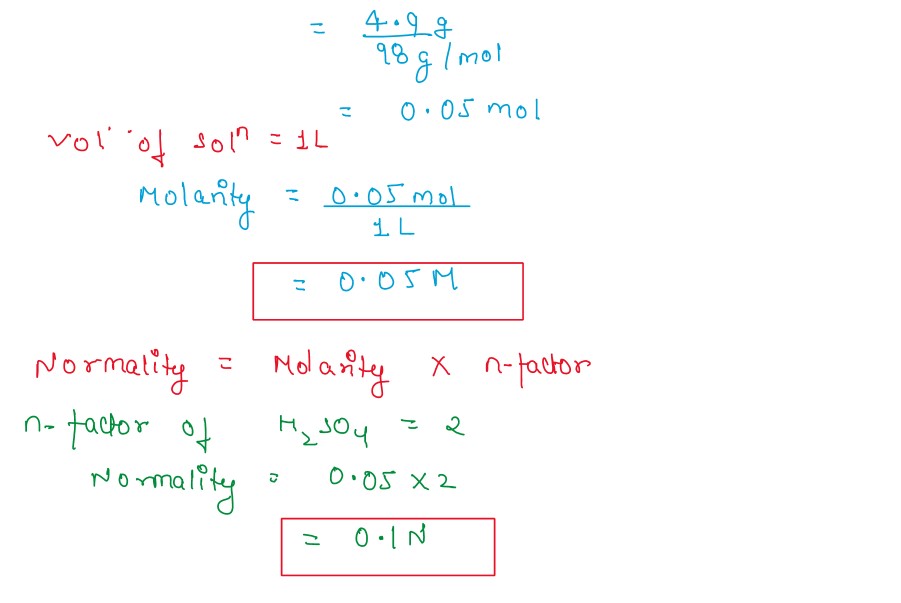 = 4.9 g / 98 g/mol
= 0.05 mol
Vol. of solⁿ = 1L
Molarity = 0.05 mol / 1 L
= 0.05 M
Normality = Molarity × n-factor
n-factor of H₂SO₄ = 2
Normality = 0.05 × 2
= 0.1 N